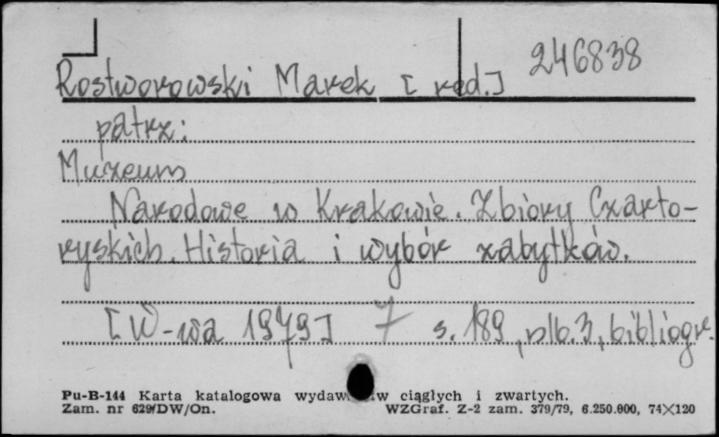 246838
Rostworowski Marek [red.]
patrz:
Muzeum
Narodowe w Krakowie. Zbiory Czarto-
ryskich. Historia i wybór zabytków.
[W-wa 1979] 7 s. 189, nlb. 3, bibliogr.
Pu-B-144 Karta katalogowa wydaw w ciągłych i zwartych.
Zam. nr 629/DW/On. WZGraf. Z-2 zam. 379/79, 6.250.000, 74×120